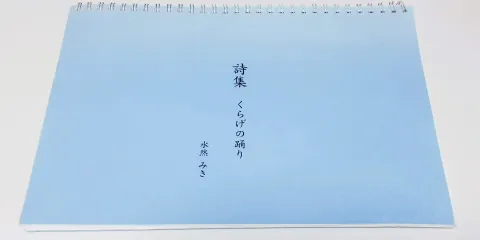 詩集 くらげの踊り
水然 みき